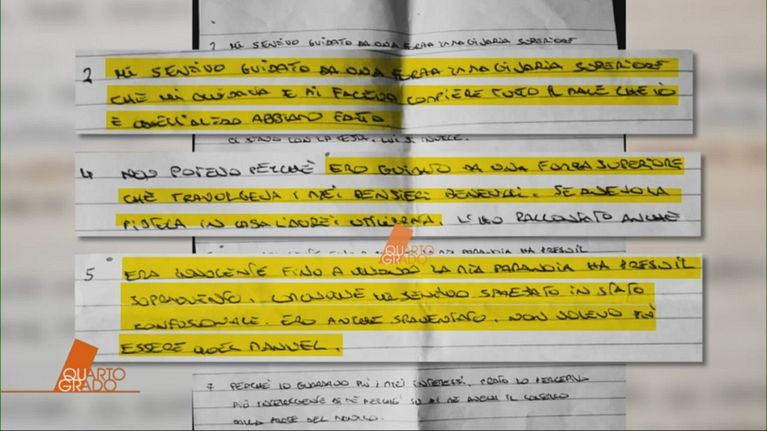 2 MI SENTIVO GUIDATO DA UNA FORZA IMMAGINARIA SUPERIORE
2 MI SENTIVO GUIDATO DA UNA FORZA IMMAGINARIA SUPERIORE
CHE MI GUIDAVA E MI FACEVA COMPIERE TUTTO IL MALE CHE IO
E QUELL'ALTRO ABBIAMO FATTO.
CI STAVO CON LA TESTA, LUI SI INVECE.
4 NON POTEVO PERCHÈ ERO GUIDATO DA UNA FORZA SUPERIORE
CHE TRAVOLGEVA I MIEI PENSIERI BENEVOLI. SE AVEVO LA
PISTOLA IN CASA L'AUREI UTILIZZATA. L'HO RACCONTATO ANCHE
QUARTO
GRADO
5 ERA INNOCENTE FINO A QUANDO LA MIA PARANOIA HA PRESO IL
SOPRAVVENTO. COMUNQUE MI SENTIVO SPAESATO IN STATO
CONFUSIONALE. ERO ANCHE SPAVENTATO. NON VOLEVO PIÙ
ESSERE QUEL MANUEL.
QUARTO
GRADO
7 PERCHÈ IO GUARDAVO PIÙ I MIEI INTERESSI. PRATO LO PERCEPIVO
PIÙ INTELLIGENTE DI ME PERCHÈ
DELLA PARTE DEL